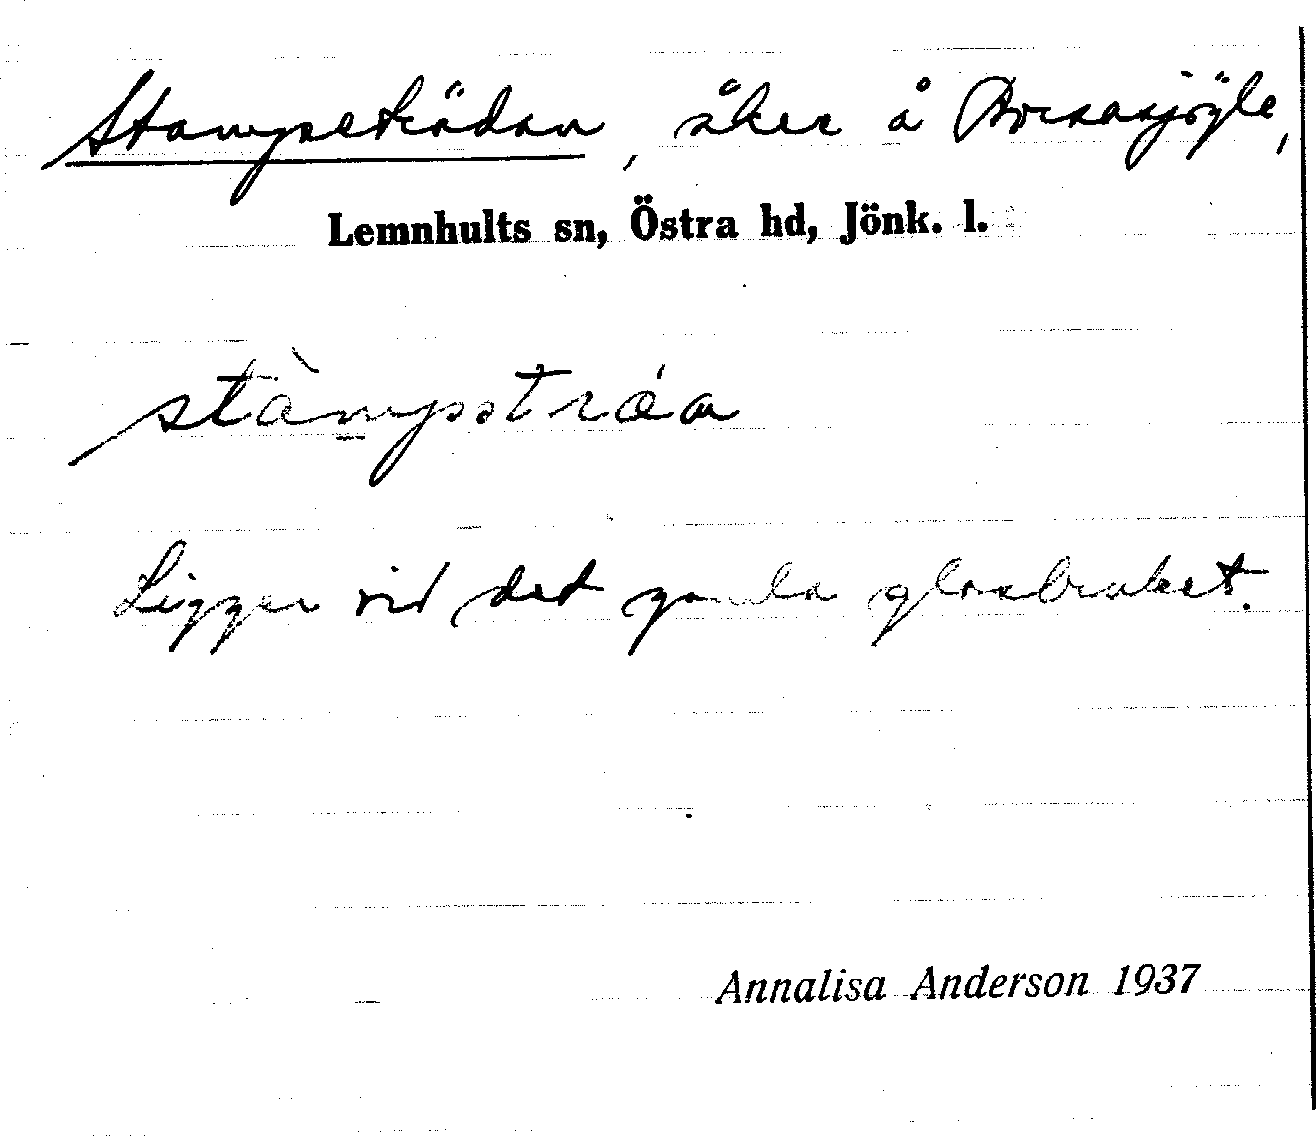 Stampeträdan, åker å Broaasjögle,
Lemnhults sn, Östra hd, Jönk. l.
stàmpsstráa
Ligger vid det gamla glasbruket.
Annalisa Anderson 1937